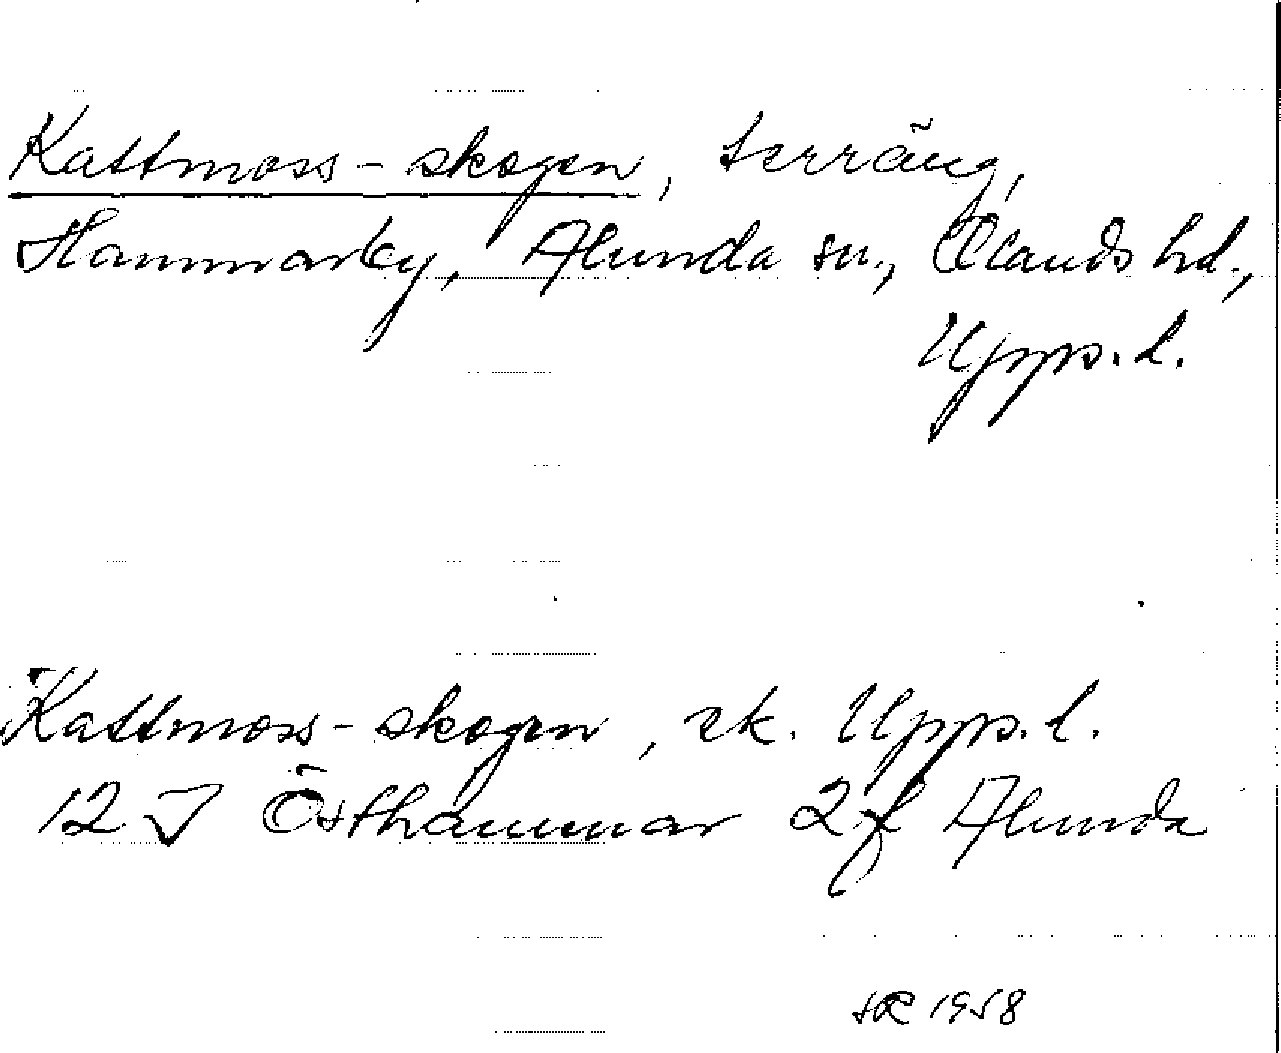 Kattmoss-skogen, terräng,
Hammarby, Alunda sn., Olands hd.,
Upps. l.
Kattmoss-skogen, ek. Upps. l.
12 I Östhammar 2 f Alunda
1958